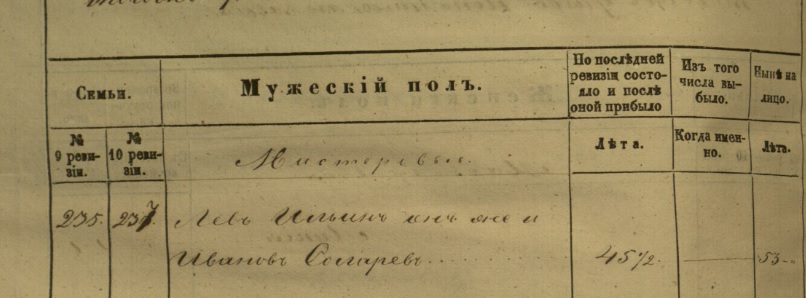 Семьи.
Мужескій полъ.
По послѣдней
ревизіи состо-
яло и послѣ
оной прибыло
Изъ того
числа вы-
было.
Нынѣ на
лицо.
№
9 реви-
зіи.
№
10 реви-
зіи.
Мастеровые.
Лѣта.
Когда имен-
но.
Лѣта.
235. 237 Левъ Ильинъ онъ же и
Ивановъ 45 1/2. 53